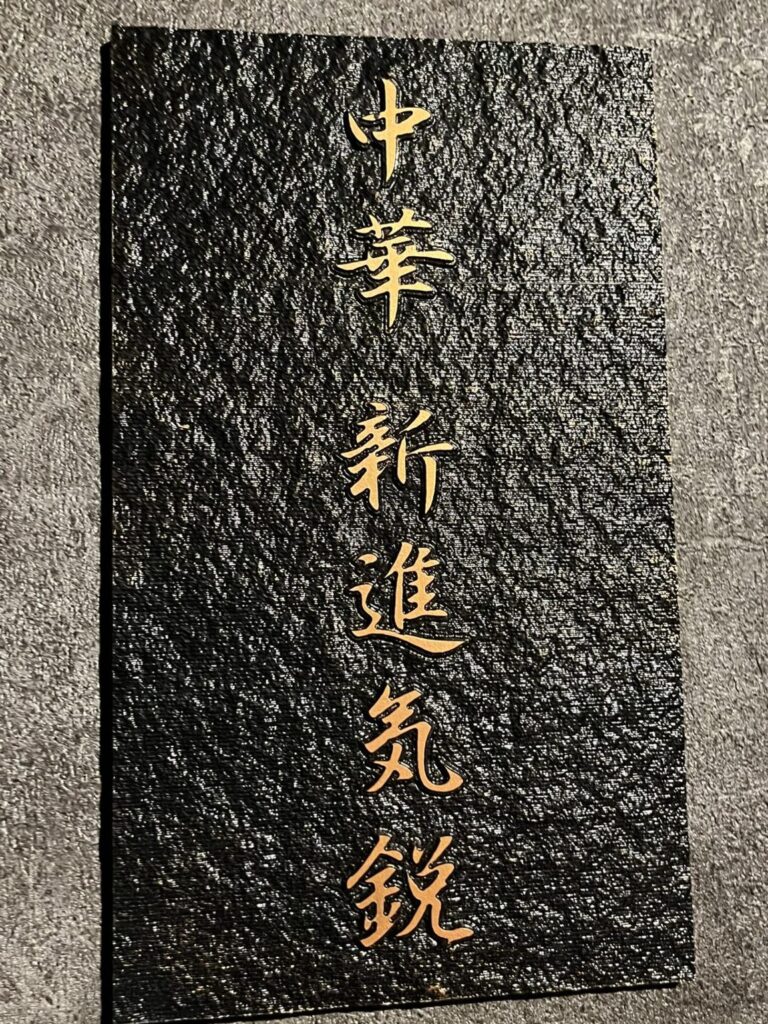 中華 新進気鋭